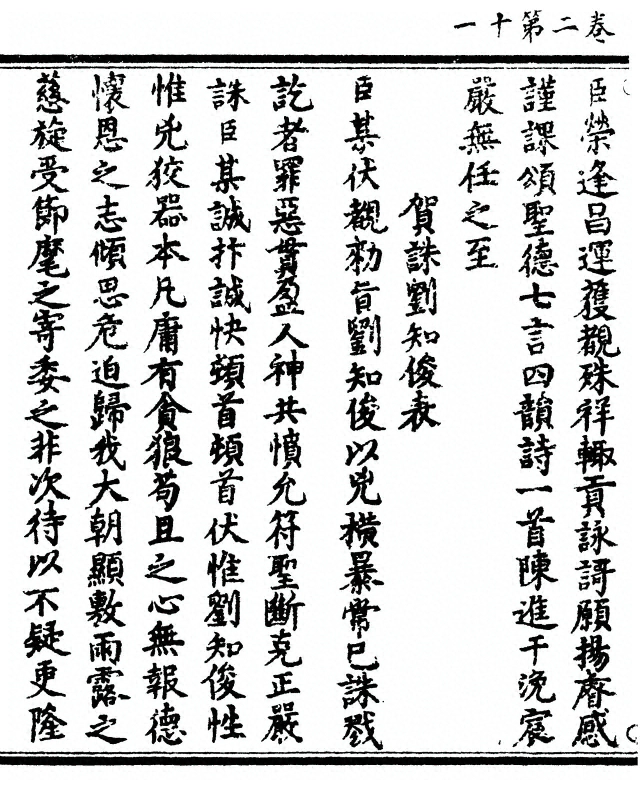 卷第二十一
臣榮逢昌運獲覩殊祥輙貢詠謌願揚睿感
謹課頌聖德七言四韻詩一首陳進干浼宸
嚴無任之至
賀誅劉知俊表
臣某伏覩勑旨劉知俊以兇橫暴常已誅戮
訖者罪惡貫盈人神共憤允符聖斷克正嚴
誅臣某誠抃誠快頓首頓首伏惟劉知俊性
惟兇狡器本凡庸有貪狼苟且之心無報德
懷恩之志傾思危迫歸我大朝顯敷雨露之
慈旋受節麾之寄委之非次待以不疑更隆